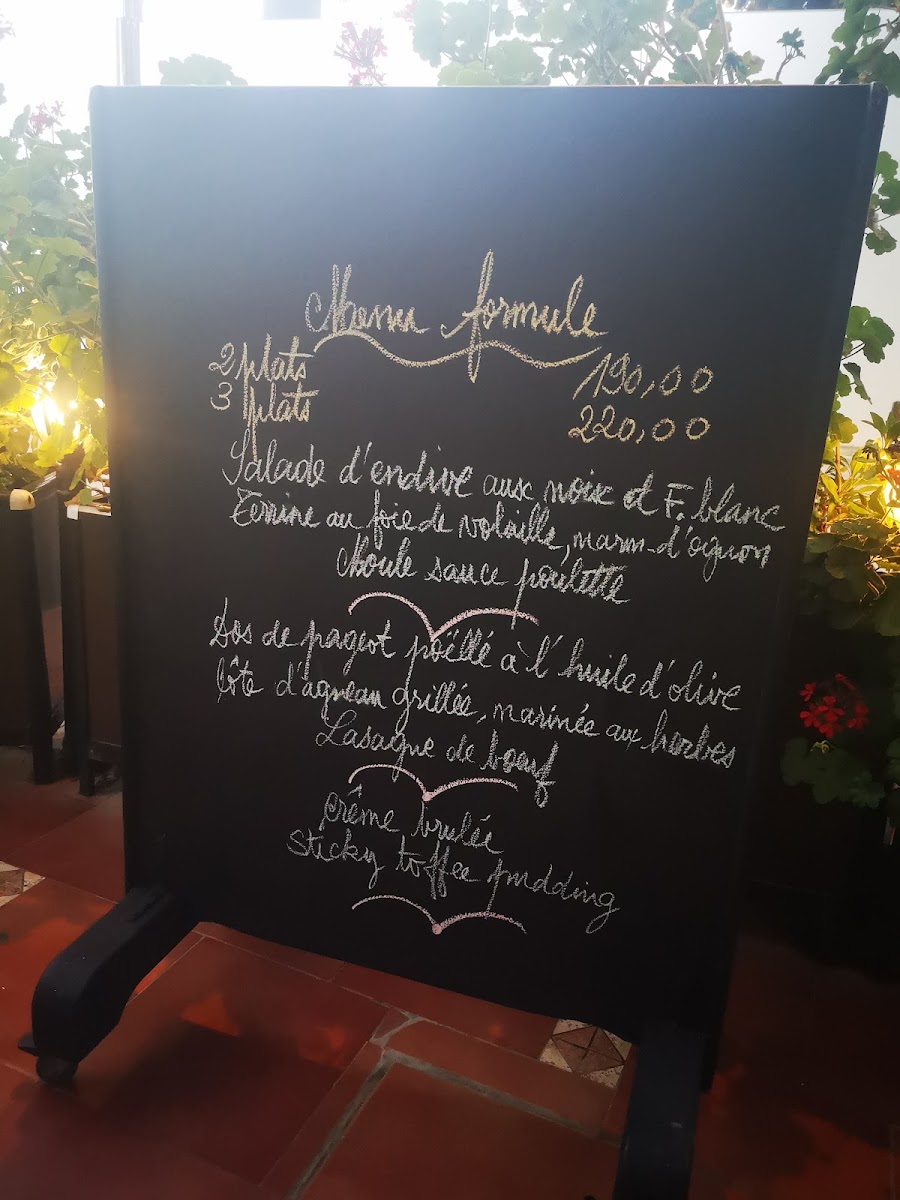 Menu formule
2 plats 190,00
3 plats 220,00
Salade d'endive aux noix et F. blanc
Terrine au foie de volaille, marm-d'oignon
Moule sauce poulette
Dos de pageot poëllé à l'huile d'olive
Côte d'agneau grillée, marinée aux herbes
Lasagne de bœuf
crème brulée
Sticky toffee pudding